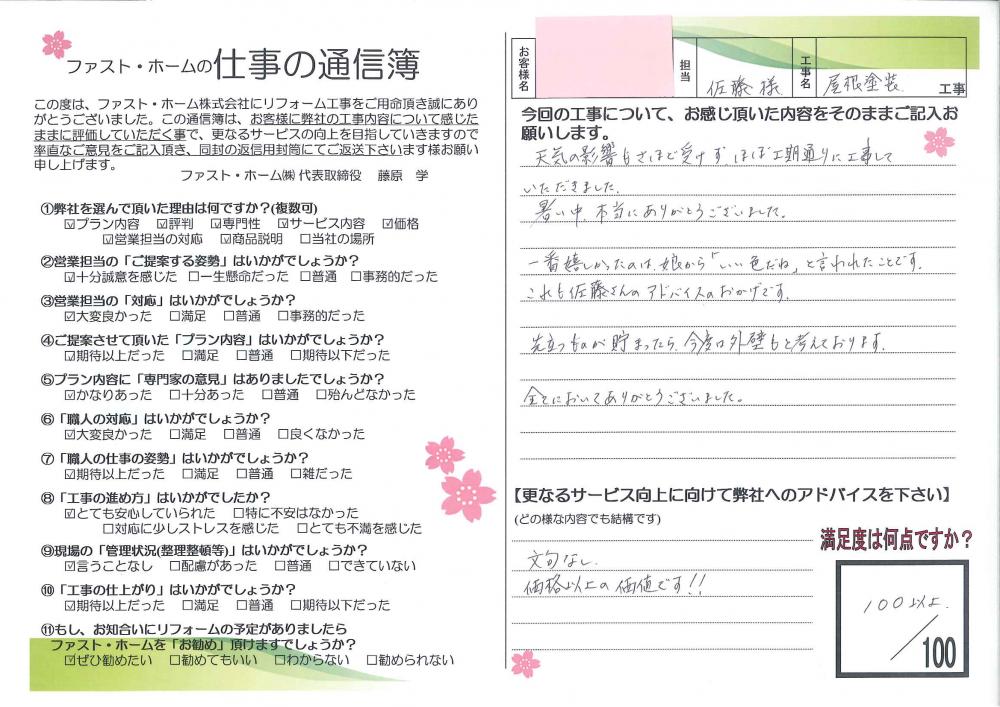 ファスト・ホームの仕事の通信簿
この度は、ファスト・ホーム株式会社にリフォーム工事をご用命頂き誠にあり
がとうございました。この通信簿は、お客様に弊社の工事内容について感じた
ままに評価していただく事で、更なるサービスの向上を目指していきますので
率直なご意見をご記入頂き、同封の返信用封筒にてご返送下さいます様お願い
申し上げます。
ファスト・ホーム㈱ 代表取締役 藤原 学
①弊社を選んで頂いた理由は何ですか?(複数可)
☑プラン内容 ☑評判 ☑専門性 ☑サービス内容 ☑価格
☑営業担当の対応 ☑商品説明 □当社の場所
②営業担当の「ご提案する姿勢」はいかがでしょうか?
☑十分誠意を感じた □一生懸命だった □普通 □事務的だった
③営業担当の「対応」はいかがでしょうか?
☑大変良かった □満足 □普通 □事務的だった
④ご提案させて頂いた「プラン内容」はいかがでしょうか?
☑期待以上だった □満足 □普通 □期待以下だった
⑤プラン内容に「専門家の意見」はありましたでしょうか?
☑かなりあった □十分あった □普通 □殆んどなかった
⑥「職人の対応」はいかがでしょうか?
☑大変良かった □満足 □普通 □良くなかった
⑦「職人の仕事の姿勢」はいかがでしょうか?
☑期待以上だった □満足 □普通 □雑だった
⑧「工事の進め方」はいかがでしたか?
☑とても安心していられた □特に不安はなかった
□対応に少しストレスを感じた □とても不満を感じた
⑨現場の「管理状況(整理整頓等)」はいかがでしょうか?
☑言うことなし □配慮があった □普通 □できていない
⑩「工事の仕上がり」はいかがでしょうか?
☑期待以上だった □満足 □普通 □期待以下だった
⑪もし、お知合いにリフォームの予定がありましたら
ファスト・ホームを「お勧め」頂けますでしょうか?
☑ぜひ勧めたい □勧めてもいい □わからない □勧められない
お客様名 担当 佐藤様 工事名 屋根塗装 工事
今回の工事について、お感じ頂いた内容をそのままご記入お
願いします。
天気の影響もさほど受けず ほぼ工期通りに工事して
いただきました。
暑い中、本当にありがとうございました。
一番嬉しかったのは、娘から「いい色だね」と言われたことです。
これも佐藤さんのアドバイスのおかげです。
先立つものが貯まったら、今度は外壁もと考えております。
全てにおいてありがとうございました。
【更なるサービス向上に向けて弊社へのアドバイスを下さい】
(どの様な内容でも結構です)
文句なし。
価格以上の価値です!!
満足度は何点ですか?
100以上.
/100